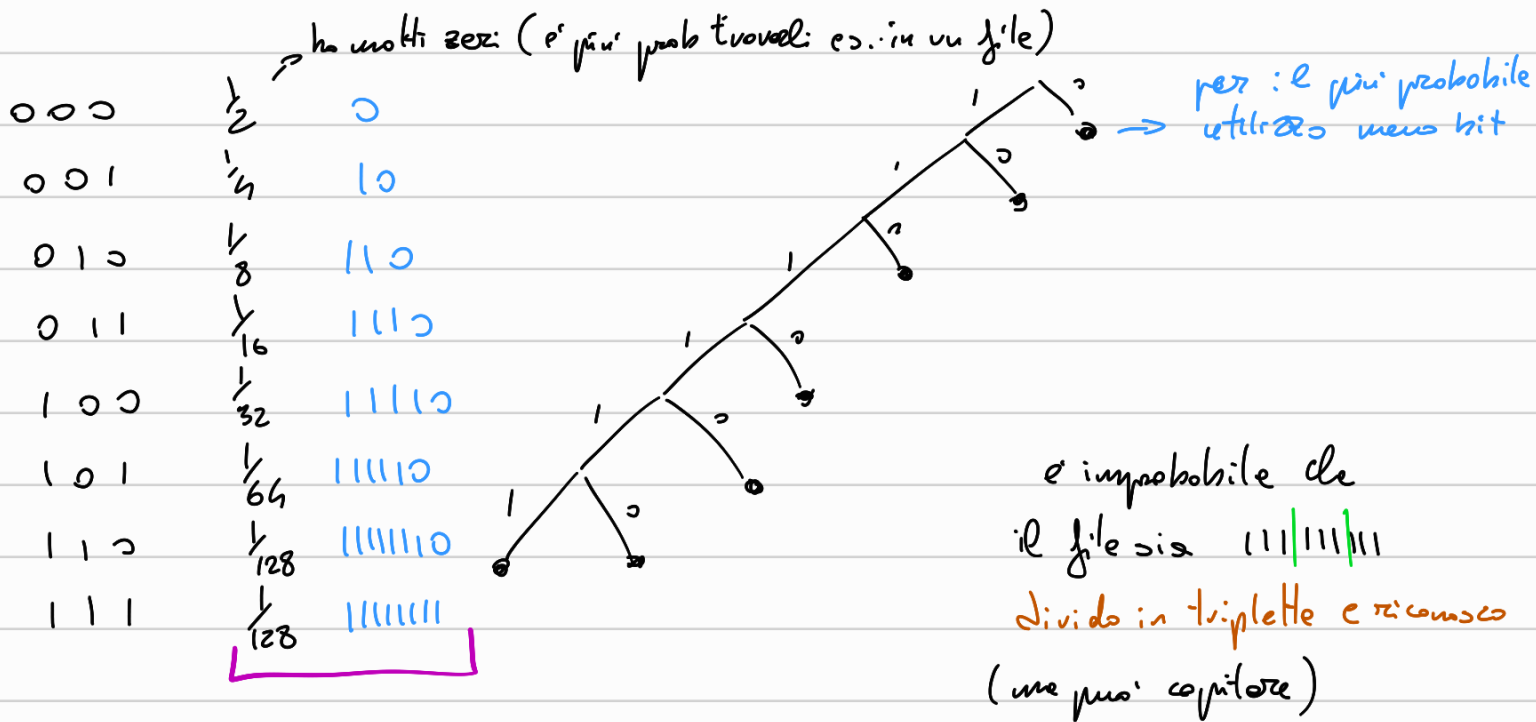 ho molti zeri (è più prob trovarli es. in un file)
000 1/2 0
001 1/4 10
010 1/8 110
011 1/16 1110
100 1/32 11110
101 1/64 111110
110 1/128 1111110
111 1/128 1111111
1 0
1 0
1 0
1 0
1 0
1 0
per il più probabile
utilizzo meno bit
è improbabile che
il file sia 111|111|111
divido in triplette e riconosco
(ma può capitare)